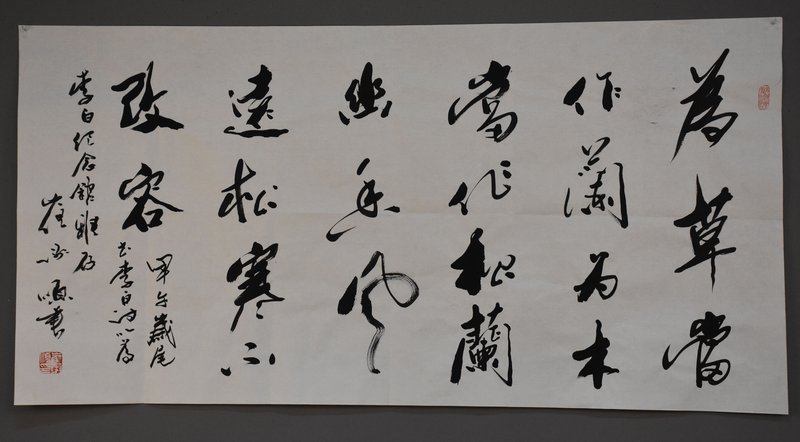 為草當
作蘭为木
當作松蘭
幽香風
遠松寒不
改容
甲午歲尾
书李白诗以為
李白纪念館雅存